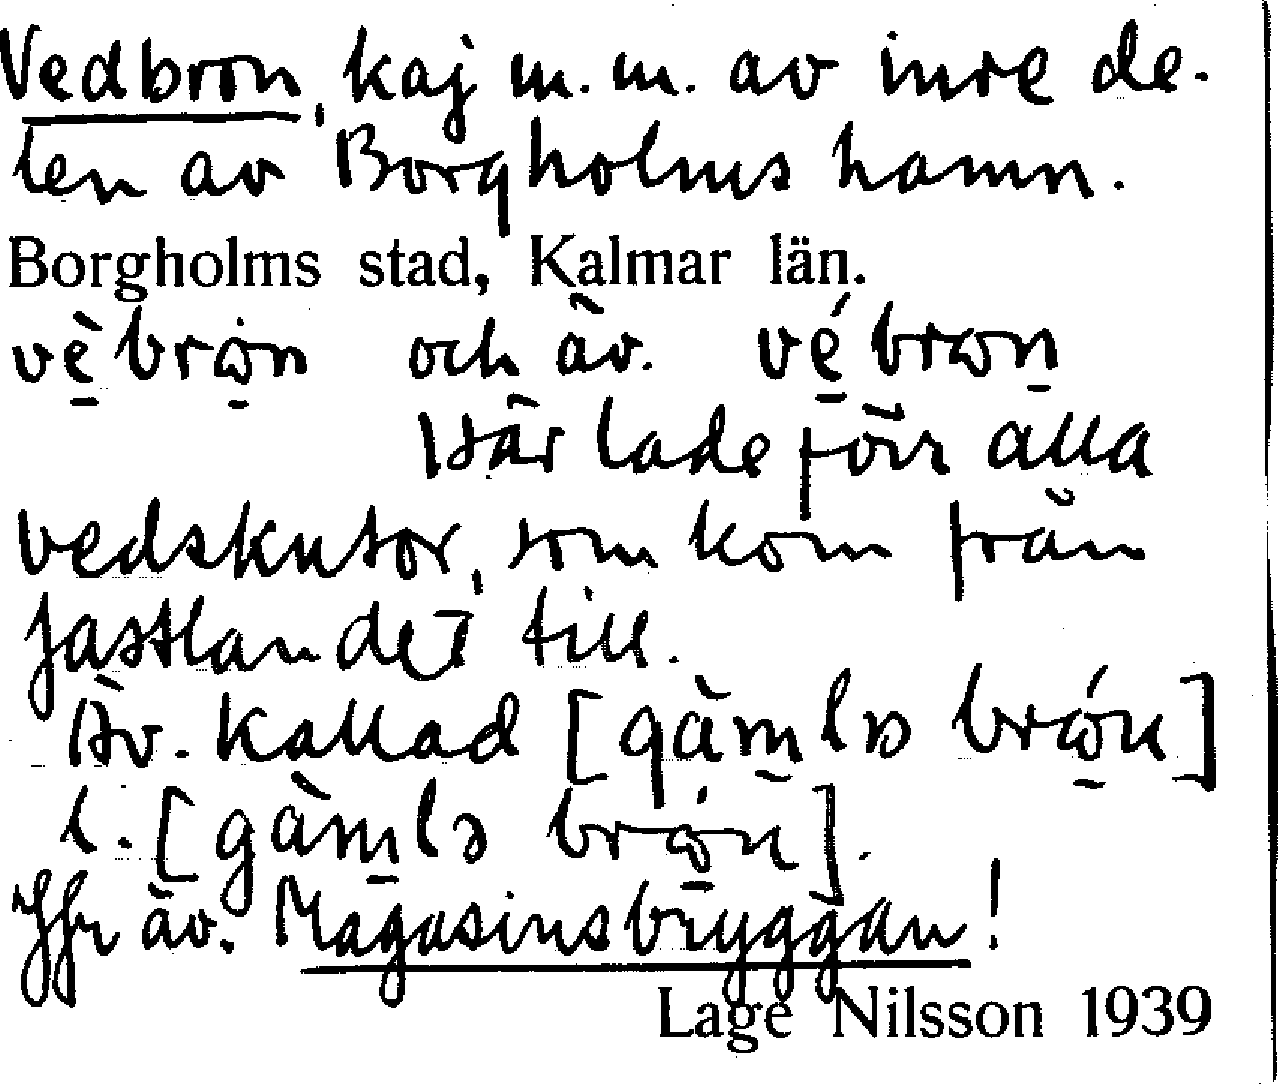 Vedbron, kaj m.m. av inre de-
len av Borgholms hamn.
Borgholms stad, Kalmar län.
vè̠brω̠̇n och äv. vé̠brωn̠
Här lade förr alla
vedskutor, som kom från
fastlandet till.
Äv. kallad [gàm̠lə brώ̠n]
l. [gàm̠lə brω̠̇n].
Jfr äv. Magasinsbryggan!
Lage Nilsson 1939